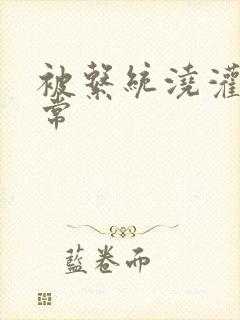 被繫統澆灌
常
藍卷而